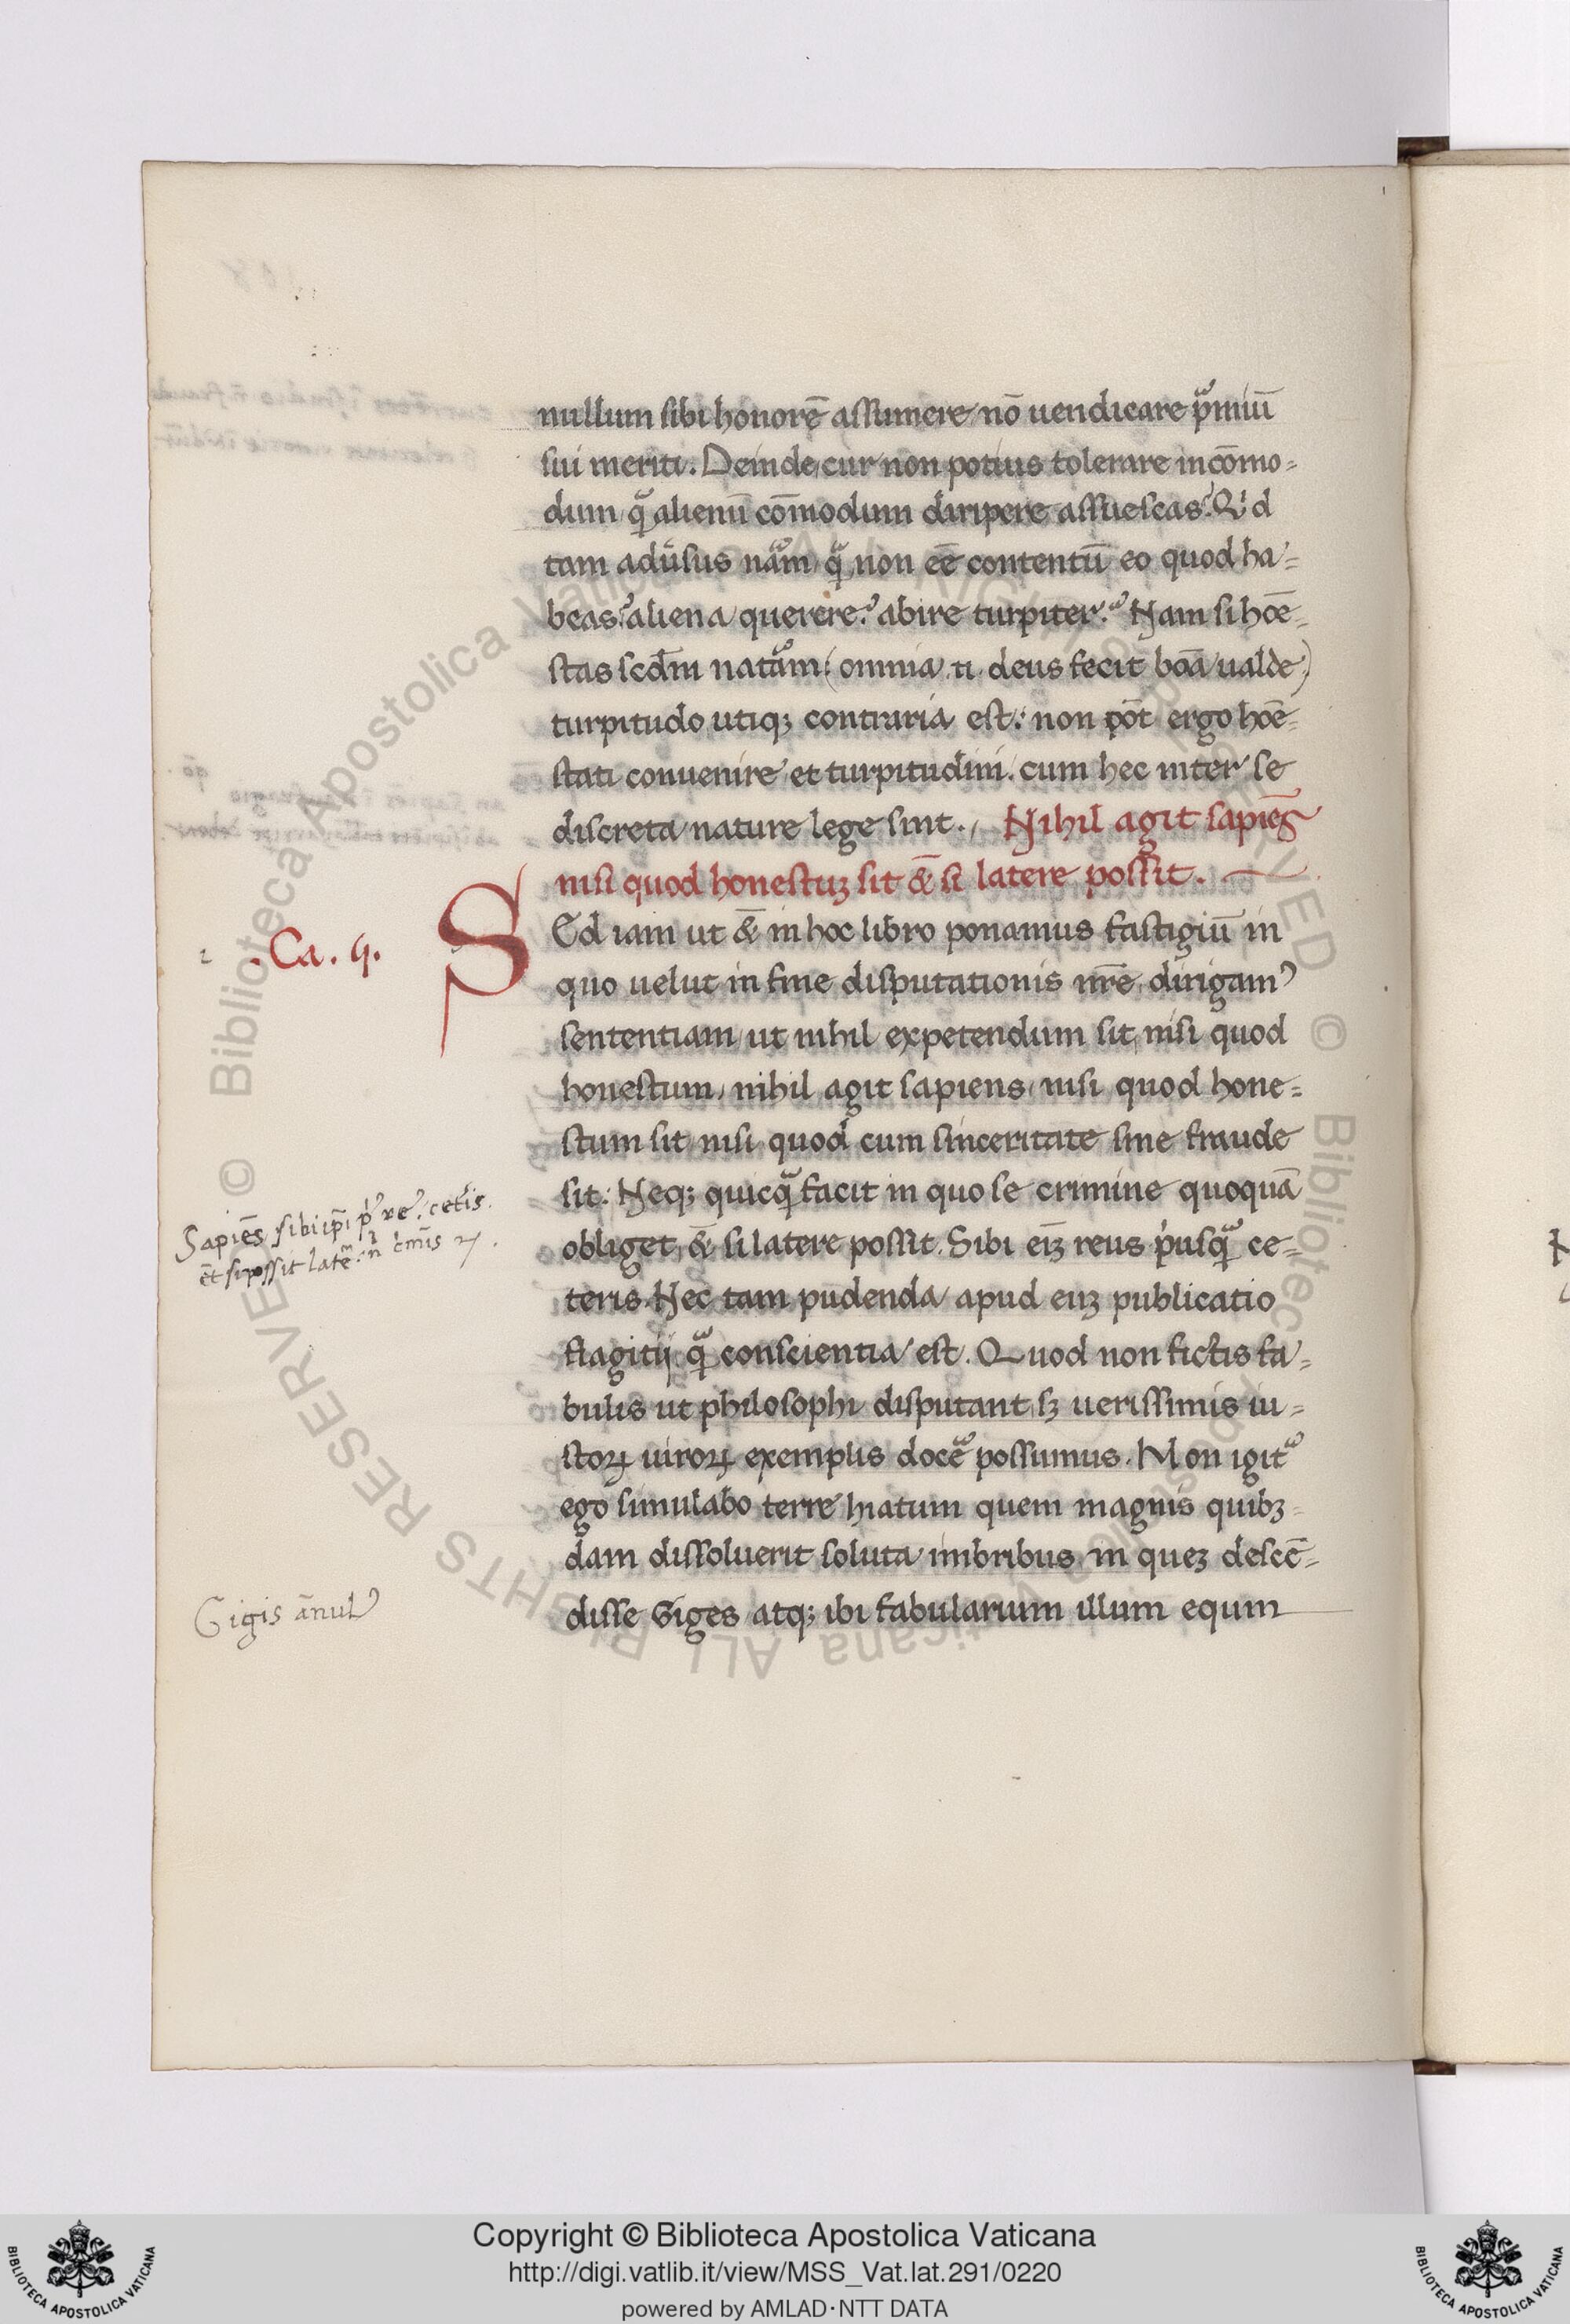 nullum sibi honorē assumere nō uendicare p̄miū
sui meriti. Deinde cur non potius tolerare incōmo-
dum q̄ alienū cōmodum diripere assuescas? Qͥd
tam adūsus nām q̄ non eē contentū eo quod ha-
beas? aliena querere? abire turpiter? Nam si hōe-
stas scdm̄ natām (omnia .n. deus fecit bōa ualde)
turpitudo utiqꝫ contraria est: non pōt ergo hōe-
stati conuenire et turpitudini. cum hec inter se
discreta nature lege sint. Nihil agit sapiēs
nisi quod honestuꝫ sit & si latere possit.
.Ca. 4.
SEd iam ut & in hoc libro ponamus fastigiū in
quo uelut in fine disputationis nr̄e dirigamꝰ
sententiam ut nihil expetendum sit nisi quod
honestum, nihil agit sapiens nisi quod hone-
stum sit nisi quod cum sinceritate sine fraude
sit: Neqꝫ quicq̄ facit in quo se crimine quoquā
obliget, & si latere possit. Sibi eīꝫ reus pͥusq̄ ce-
teris. Nec tam pudenda apud euꝫ publicatio
flagitij q̄ conscientia est. Quod non fictis fa-
bulis ut philosophi disputant sꝫ uerissimis iu-
stoꝝ uiroꝝ exemplis docē possumus. Non igit᷑
ego simulabo terre hiatum quem magnis quibꝫ-
dam dissoluerit soluta imbribus in queꝫ descē-
disse Giges atqꝫ ibi fabularium illum equm
Sapiēs sibi ip̄i
ēt si possit latē
Gigis ānulꝰ
Copyright © Biblioteca Apostolica Vaticana
http://digi.vatlib.it/view/MSS_Vat.lat.291/0220
powered by AMLAD·NTT DATA
BIBLIOTECA APOSTOLICA VATICANA
BIBLIOTECA APOSTOLICA VATICANA